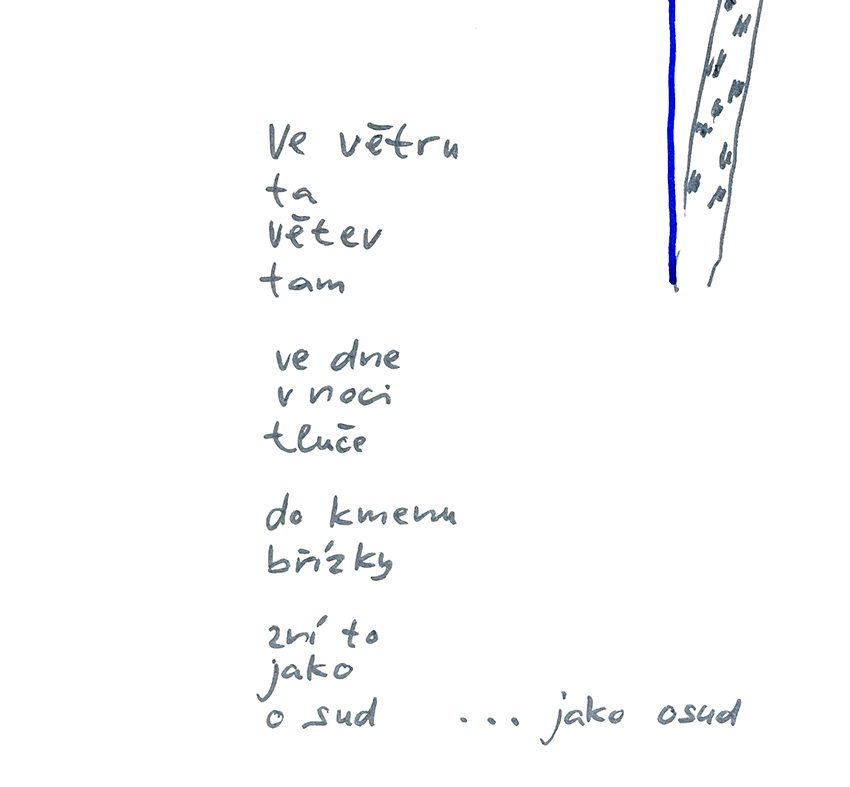 Ve větru
ta
větev
tam
ve dne
v noci
tluče
do kmenu
břízky
zní to
jako
o sud ... jako osud